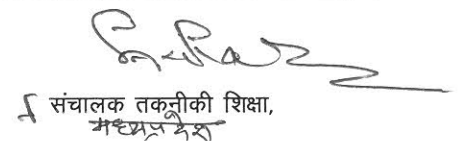 संचालक तकनीकी शिक्षा,
मध्यप्रदेश